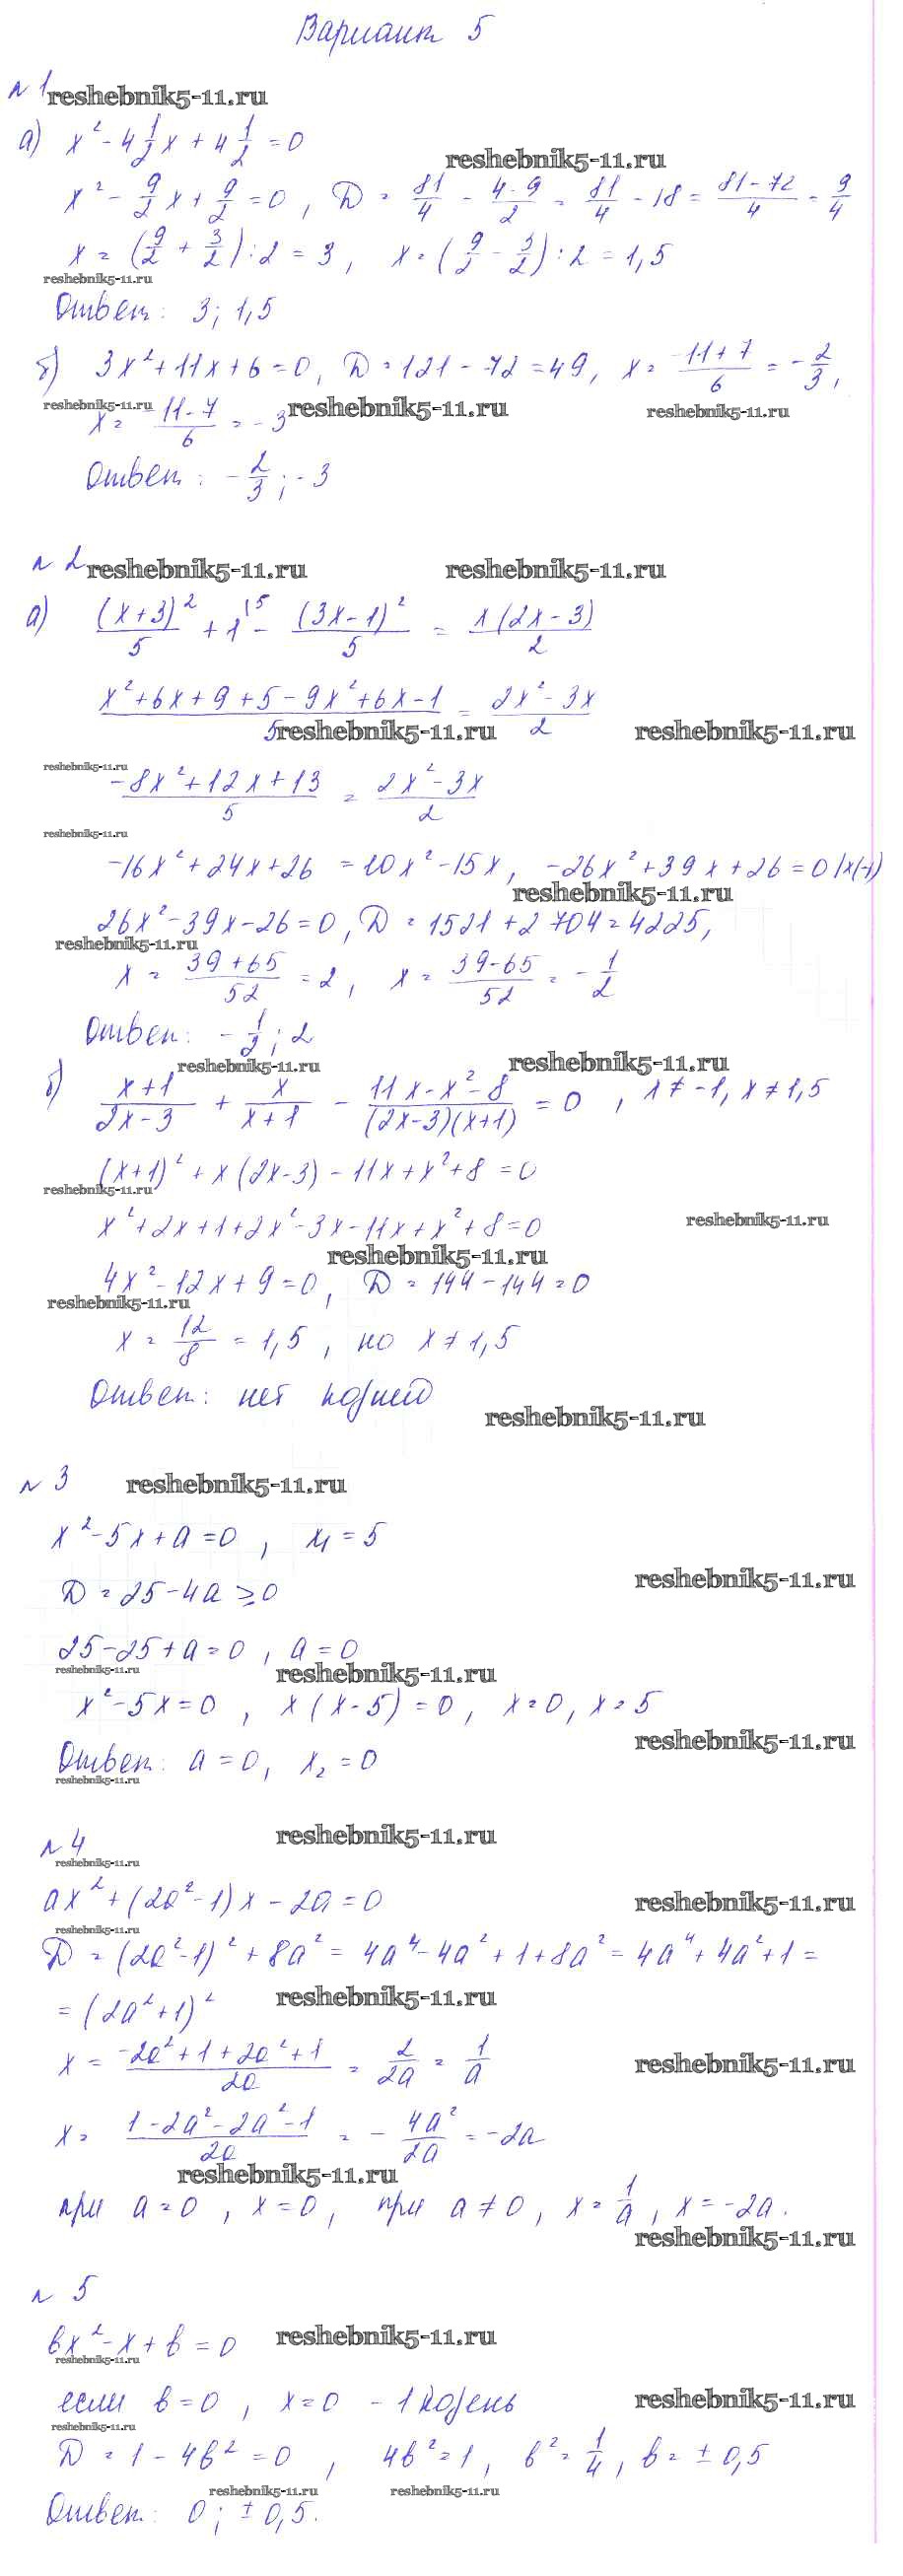 Вариант 5
№ 1 reshebnik5-11.ru
а) x² - 4 1/2 x + 4 1/2 = 0
reshebnik5-11.ru
x² - 9/2 x + 9/2 = 0, D = 81/4 - 4·9/2 = 81/4 - 18 = 81-72/4 = 9/4
x = (9/2 + 3/2) : 2 = 3, x = (9/2 - 3/2) : 2 = 1,5
reshebnik5-11.ru
Ответ: 3; 1,5
б) 3x² + 11x + 6 = 0, D = 121 - 72 = 49, x = -11+7/6 = -2/3,
reshebnik5-11.ru reshebnik5-11.ru reshebnik5-11.ru
x = -11-7/6 = -3
Ответ: -2/3; -3
№ 2 reshebnik5-11.ru reshebnik5-11.ru
а) (x+3)²/5 + 1^(5 - (3x-1)²/5 = x(2x-3)/2
x²+6x+9+5-9x²+6x-1/5 = 2x²-3x/2
reshebnik5-11.ru reshebnik5-11.ru
reshebnik5-11.ru
-8x²+12x+13/5 = 2x²-3x/2
reshebnik5-11.ru
-16x²+24x+26 = 10x²-15x, -26x²+39x+26=0 |x(-1)
reshebnik5-11.ru
26x²-39x-26=0, D = 1521+2704=4225,
reshebnik5-11.ru
x = 39+65/52 = 2, x = 39-65/52 = -1/2
Ответ: -1/2; 2
reshebnik5-11.ru reshebnik5-11.ru
б) x+1/2x-3 + x/x+1 - 11x-x²-8/(2x-3)(x+1) = 0, x ≠ -1, x ≠ 1,5
(x+1)² + x(2x-3) - 11x+x²+8 = 0
reshebnik5-11.ru
x²+2x+1+2x²-3x-11x+x²+8=0
reshebnik5-11.ru
reshebnik5-11.ru
4x²-12x+9=0, D = 144-144=0
reshebnik5-11.ru
x = 12/8 = 1,5, но x ≠ 1,5
Ответ: нет корней
reshebnik5-11.ru
№ 3 reshebnik5-11.ru
x²-5x+a=0, x₁=5
reshebnik5-11.ru
D = 25-4a ≥ 0
25-25+a=0, a=0
reshebnik5-11.ru reshebnik5-11.ru
x²-5x=0, x(x-5)=0, x=0, x=5
reshebnik5-11.ru
Ответ: a=0, x₂=0
reshebnik5-11.ru
№ 4 reshebnik5-11.ru
reshebnik5-11.ru
ax²+(2a²-1)x-2a=0
reshebnik5-11.ru
reshebnik5-11.ru
D = (2a²-1)²+8a² = 4a⁴-4a²+1+8a² = 4a⁴+4a²+1 =
= (2a²+1)² reshebnik5-11.ru
x = -2a²+1+2a²+1/2a = 2/2a = 1/a
reshebnik5-11.ru
x = 1-2a²-2a²-1/2a = -4a²/2a = -2a
reshebnik5-11.ru
при a=0, x=0, при a≠0, x=1/a, x=-2a.
reshebnik5-11.ru
№ 5
bx²-x+b=0 reshebnik5-11.ru
reshebnik5-11.ru
если b=0, x=0 - 1 корень
reshebnik5-11.ru
reshebnik5-11.ru
D = 1-4b²=0, 4b²=1, b²=1/4, b=±0,5
reshebnik5-11.ru reshebnik5-11.ru
Ответ: 0; ±0,5.